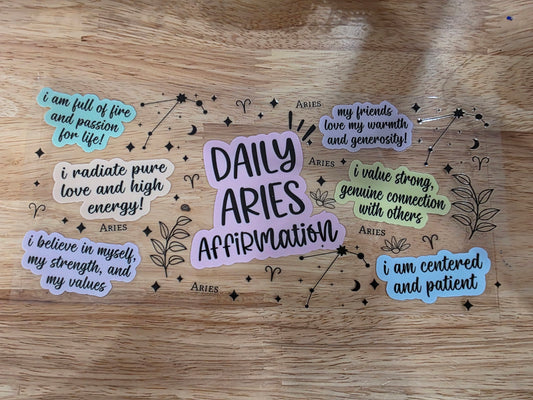 i am full of fire
and passion
for life!
Aries
my friends
love my warmth
and generosity!
i radiate pure
love and high
energy!
DAILY
ARIES
AFFIRMATION
Aries
i value strong,
genuine connection
with others
Aries
Aries
i believe in myself,
my strength, and
my values
i am centered
and patient
Aries